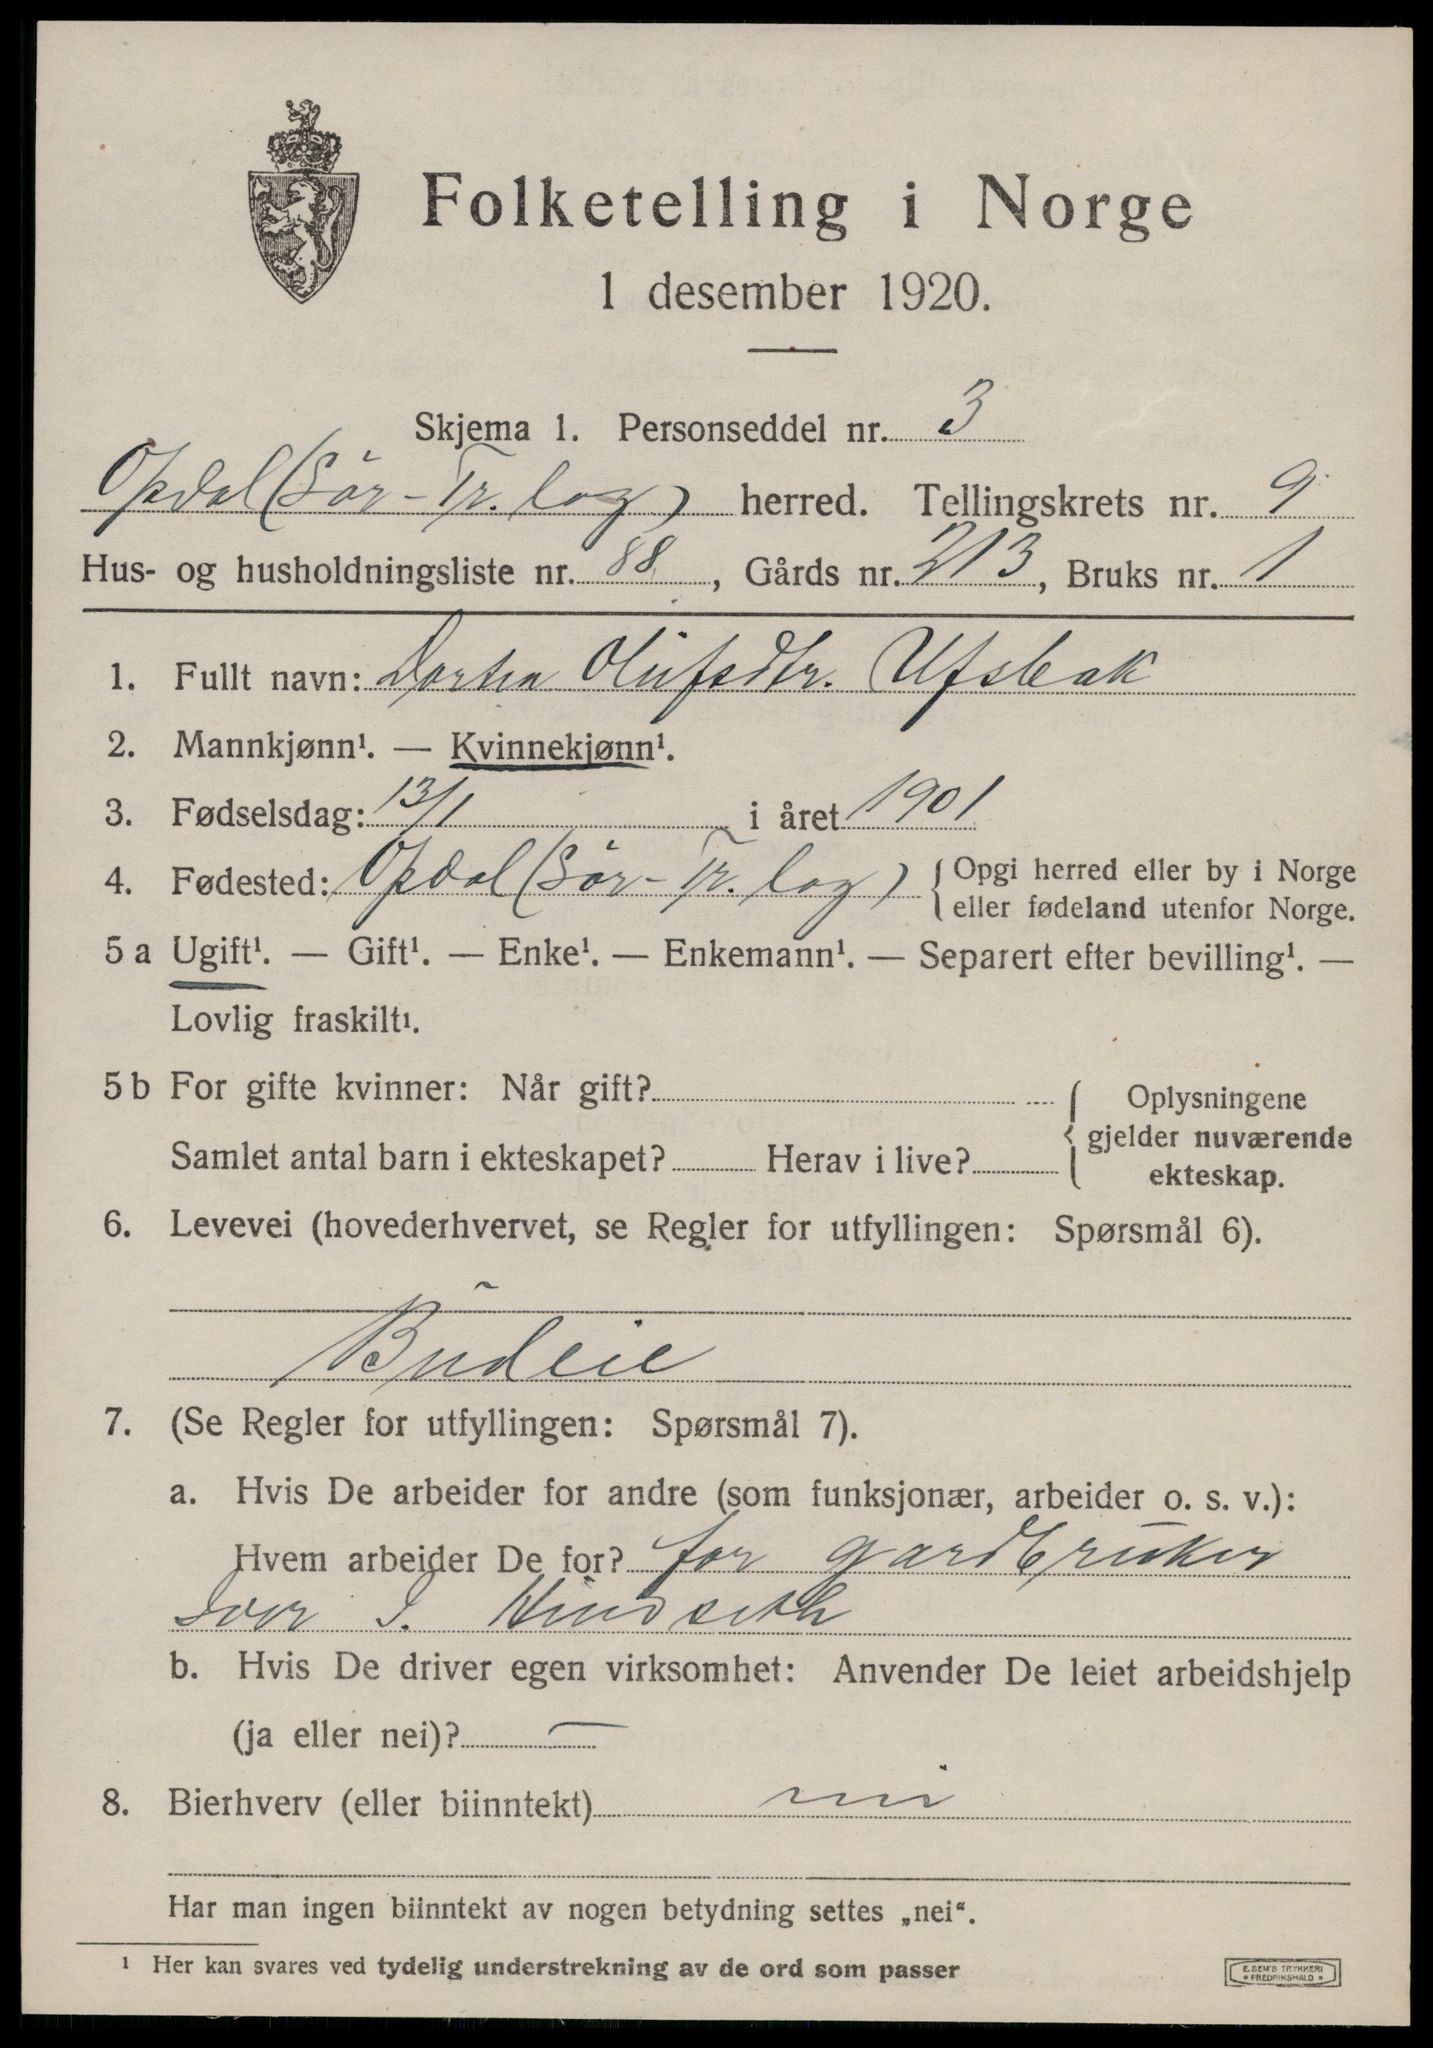 Folketelling i Norge
1 desember 1920.
Skjema 1. Personseddel nr. 3
Opdal (Sör-Tr.lag) herred. Tellingskrets nr. 9
Hus- og husholdningsliste nr. 88, Gårds nr. 213, Bruks nr. 1
1. Fullt navn: Dortea Olufsdtr. Ufsbak
2. Mannkjønn¹. — Kvinnekjønn¹.
3. Fødselsdag: 13/1 i året 1901
4. Fødested: Opdal (Sör-Tr.lag) { Opgi herred eller by i Norge
eller fødeland utenfor Norge.
5 a Ugift¹. — Gift¹. — Enke¹. — Enkemann¹. — Separert efter bevilling¹. —
Lovlig fraskilt¹.
5 b For gifte kvinner: Når gift?
Samlet antal barn i ekteskapet? Herav i live?
{ Oplysningene
gjelder nuværende
ekteskap.
6. Levevei (hovederhvervet, se Regler for utfyllingen: Spørsmål 6).
Budeie
7. (Se Regler for utfyllingen: Spørsmål 7).
a. Hvis De arbeider for andre (som funksjonær, arbeider o. s. v.):
Hvem arbeider De for? for gardbruker
Ivar I. Vindseth
b. Hvis De driver egen virksomhet: Anvender De leiet arbeidshjelp
(ja eller nei)? —
8. Bierhverv (eller biinntekt) nei
Har man ingen biinntekt av nogen betydning settes „nei“.
¹ Her kan svares ved tydelig understrekning av de ord som passer
E. SEM'S TRYKKERI
• FREDRIKSHALD •